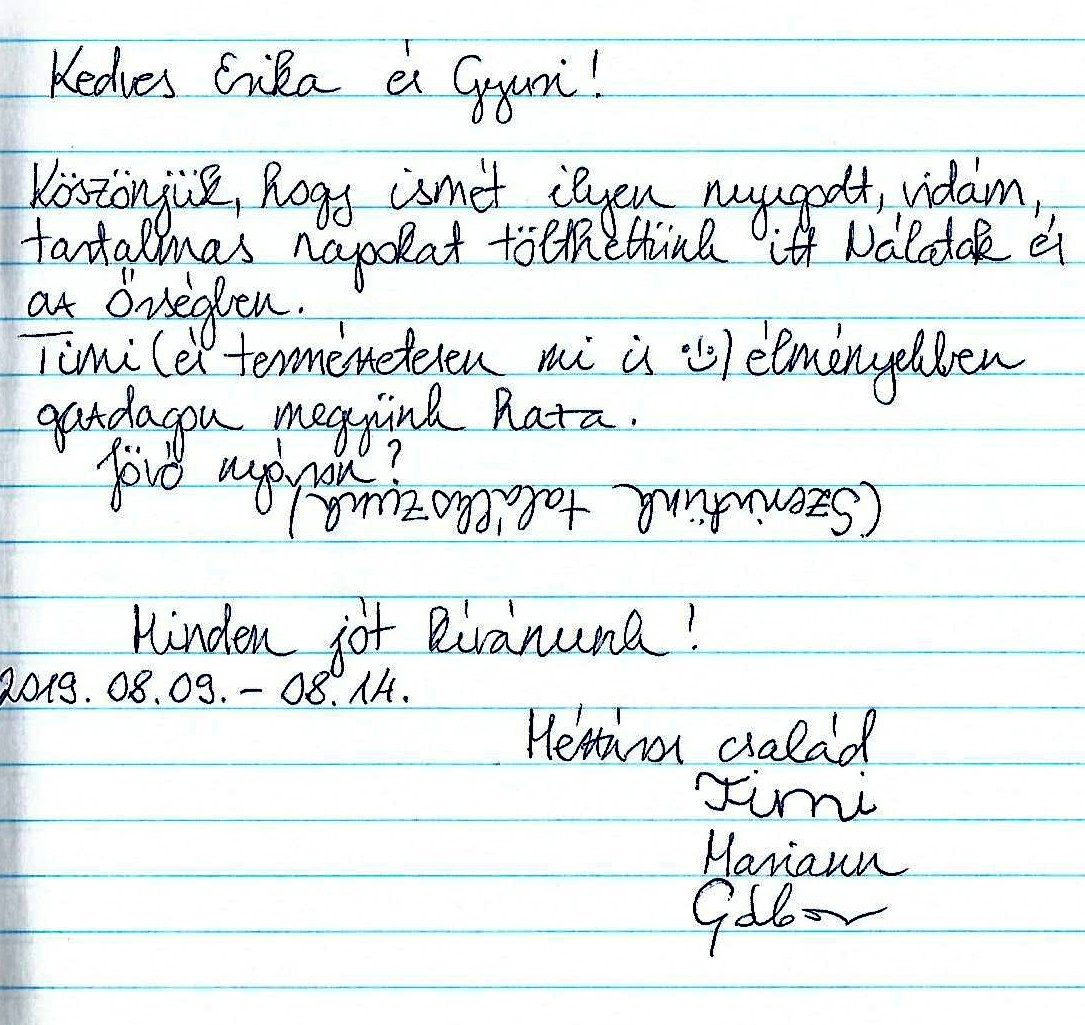 Kedves Erika és Gyuri!
Köszönjük, hogy ismét ilyen nyugodt, vidám,
tartalmas napokat tölthettünk itt Nálatok és
az Őrségben.
Timi (és természetesen mi is :)) élményekben
gazdagon megyünk haza.
Jövő nyáron?
(Szerintünk találkozunk)
Minden jót kívánunk!
2019. 08.09. - 08.14.
Mészáros család
Timi
Mariann
Gábor